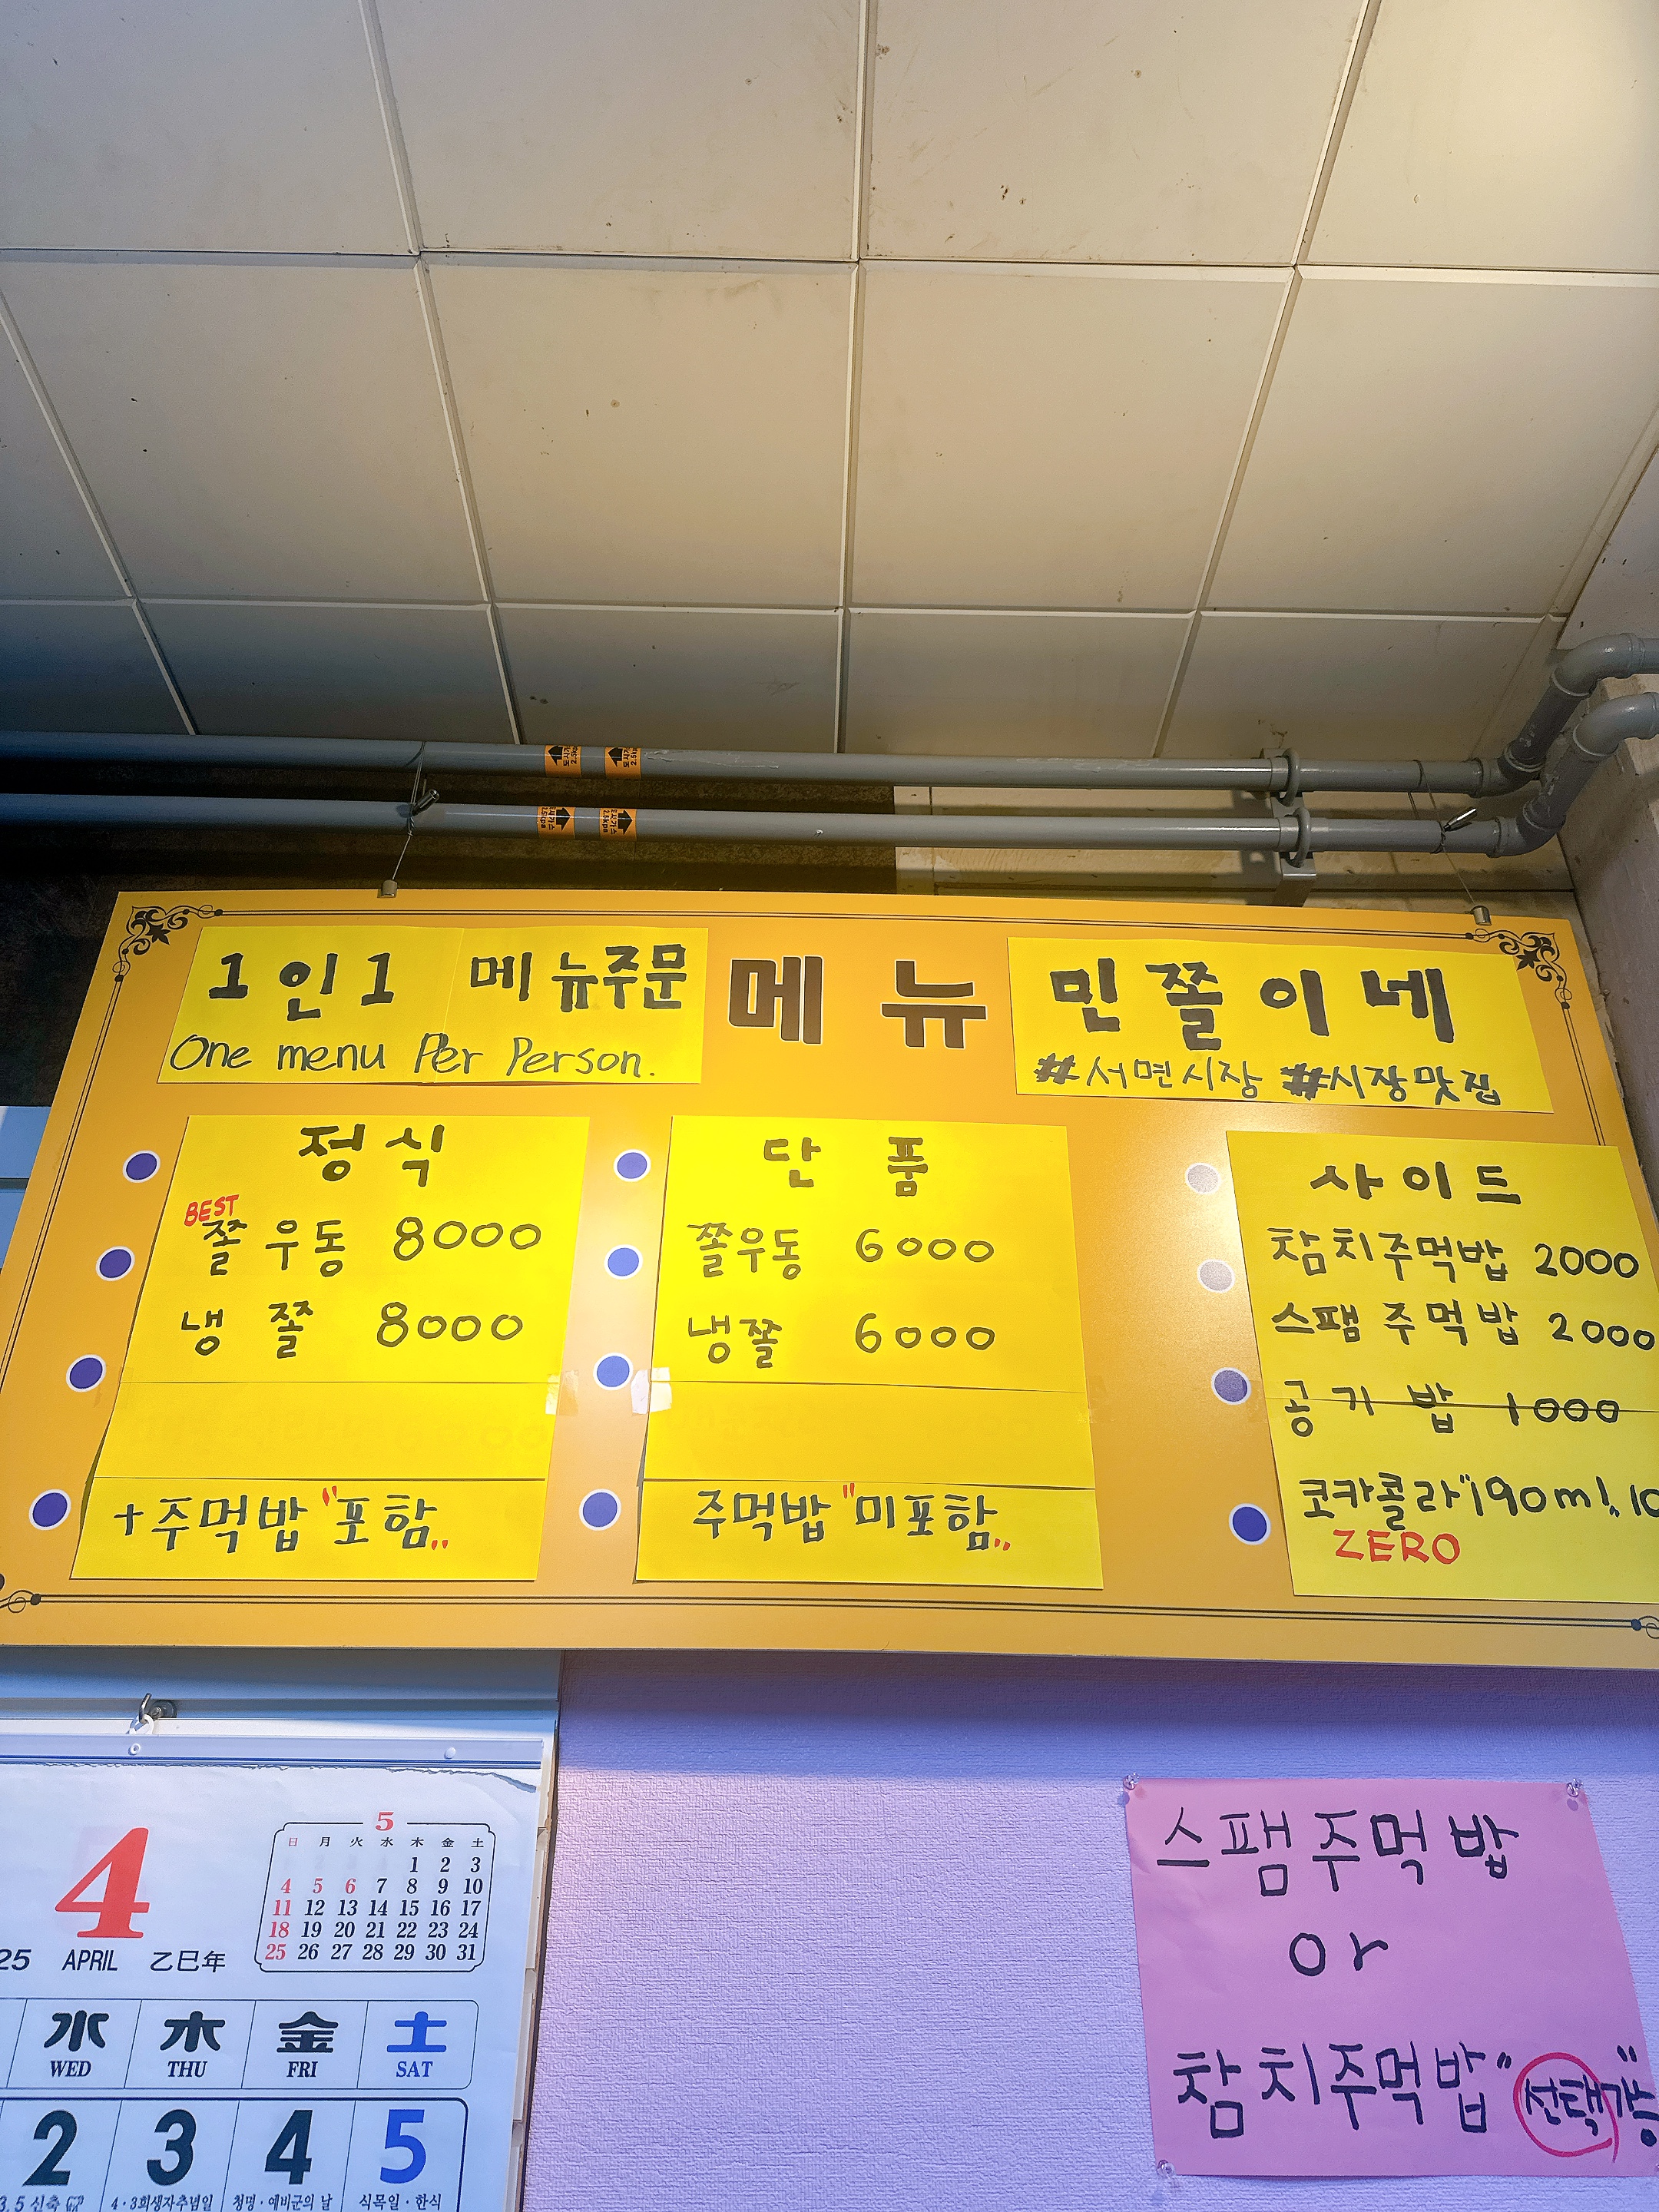 1인1 메뉴주문
One menu Per Person.
메뉴
민쫄이네
#서면시장 #시장맛집
정식
BEST
쫄우동 8000
냉쫄 8000
+주먹밥 "포함"
단품
쫄우동 6000
냉쫄 6000
주먹밥 "미포함"
사이드
참치주먹밥 2000
스팸 주먹밥 2000
공기밥 1000
코카콜라 "190ml"
ZERO
4
25 APRIL 乙巳年
5
日 月 火 水 木 金 土
1 2 3
4 5 6 7 8 9 10
11 12 13 14 15 16 17
18 19 20 21 22 23 24
25 26 27 28 29 30 31
水 木 金 土
WED THU FRI SAT
2 3 4 5
4·3희생자추념일 청명·예비군의 날 식목일·한식
스팸주먹밥
or
참치주먹밥 "선택가능"